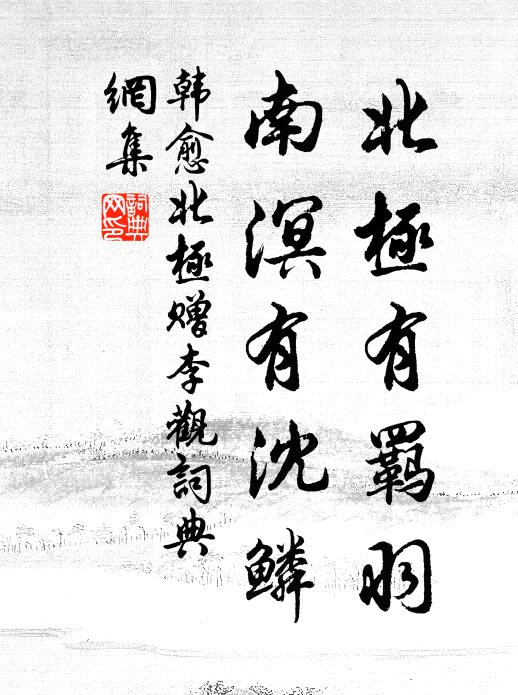 北極有羈羽
南溟有沈鱗
韩愈北極赠李觀詞典
網集
詞典
网印